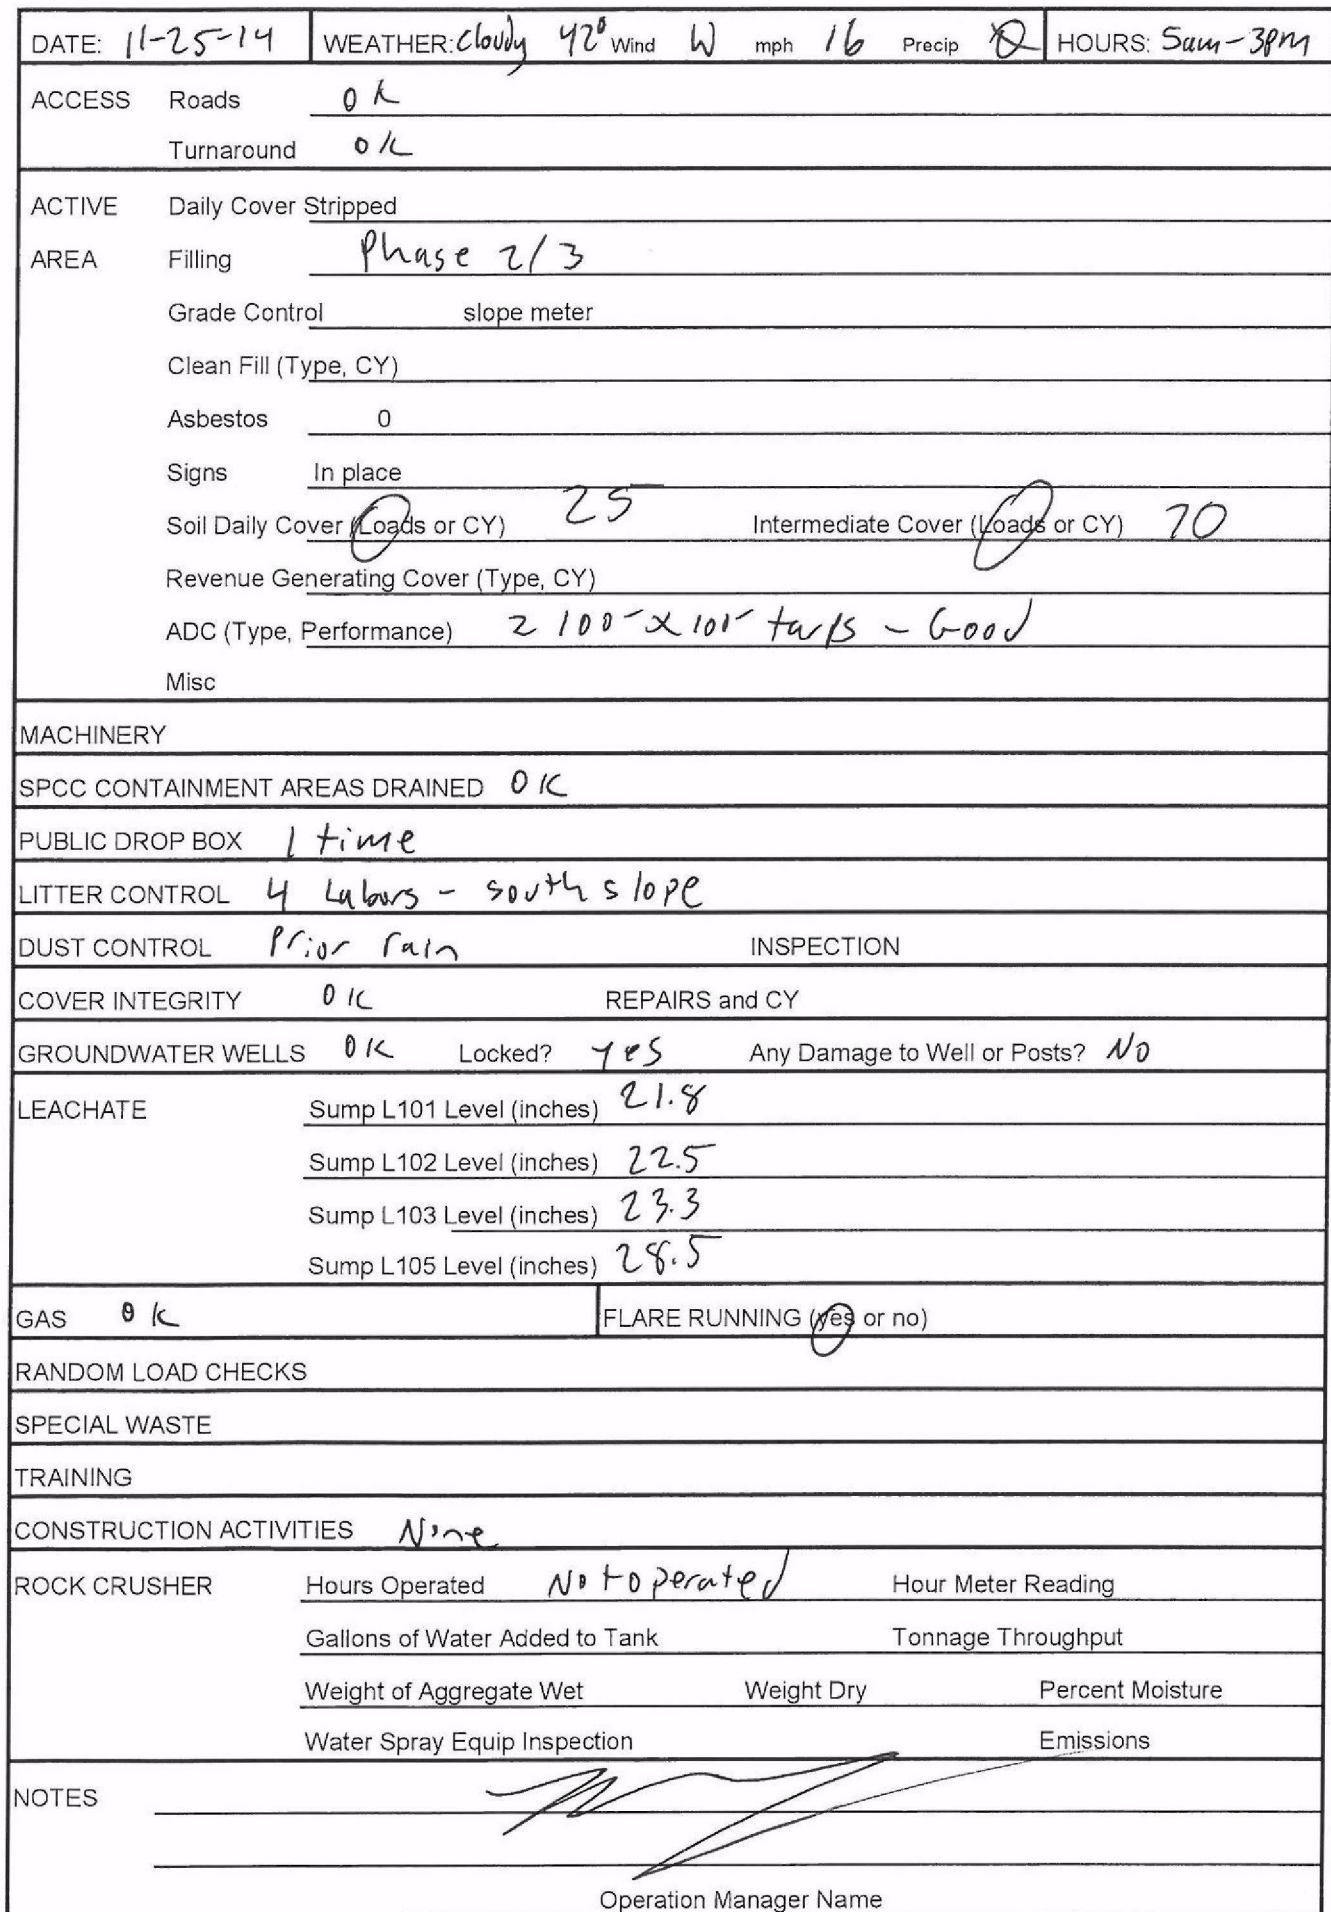 DATE: 11-25-14 WEATHER: Cloudy 42° Wind W mph 16 Precip 0 HOURS: 5am-3pm
ACCESS Roads OK
Turnaround OK
ACTIVE Daily Cover Stripped
AREA Filling Phase 2/3
Grade Control slope meter
Clean Fill (Type, CY)
Asbestos 0
Signs In place
Soil Daily Cover (Loads or CY) 25 Intermediate Cover (Loads or CY) 70
Revenue Generating Cover (Type, CY)
ADC (Type, Performance) 2 100-x100- tarps - Good
Misc
MACHINERY
SPCC CONTAINMENT AREAS DRAINED OK
PUBLIC DROP BOX 1 time
LITTER CONTROL 4 Labors - south slope
DUST CONTROL Prior rain INSPECTION
COVER INTEGRITY OK REPAIRS and CY
GROUNDWATER WELLS OK Locked? yes Any Damage to Well or Posts? NO
LEACHATE Sump L101 Level (inches) 21.8
Sump L102 Level (inches) 22.5
Sump L103 Level (inches) 23.3
Sump L105 Level (inches) 28.5
GAS OK FLARE RUNNING (yes or no)
RANDOM LOAD CHECKS
SPECIAL WASTE
TRAINING
CONSTRUCTION ACTIVITIES None
ROCK CRUSHER Hours Operated Not operated Hour Meter Reading
Gallons of Water Added to Tank Tonnage Throughput
Weight of Aggregate Wet Weight Dry Percent Moisture
Water Spray Equip Inspection Emissions
NOTES
Operation Manager Name